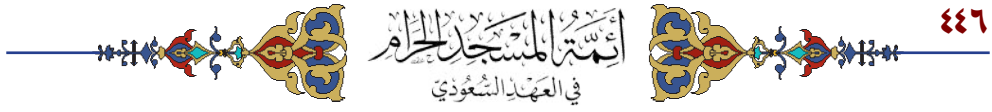 ٤٤٦
أَئِمَّةُ المَسْجِدِ الحَرَامِ
في العَهْدِ السُّعُوْدِيّ